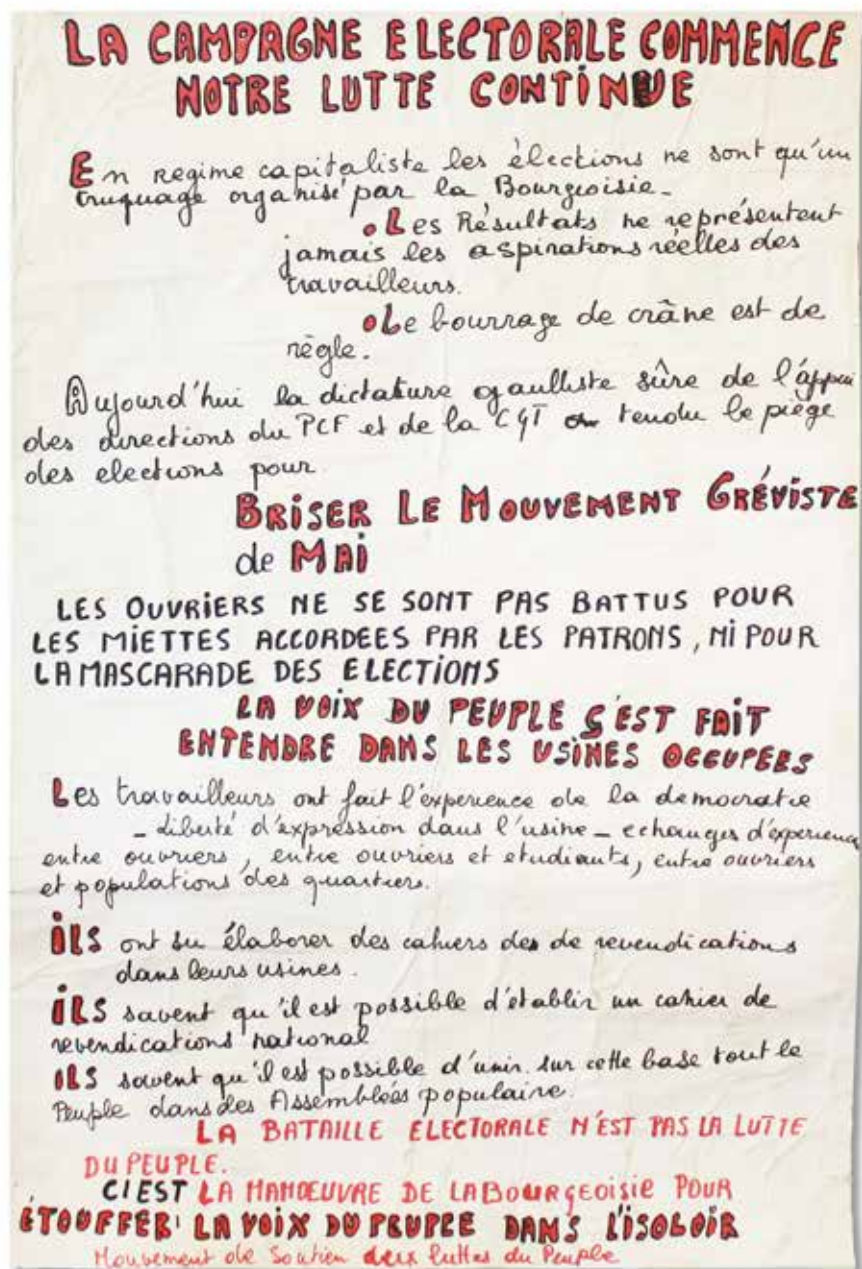 LA CAMPAGNE ELECTORALE COMMENCE
NOTRE LUTTE CONTINUE
En régime capitaliste les élections ne sont qu'un
truquage organisé par la Bourgeoisie_
• Les Résultats ne représentent
jamais les aspirations réelles des
travailleurs.
• Le bourrage de crâne est de
règle.
Aujourd'hui la dictature gaulliste sûre de l'appui
des directions du PCF et de la CGT a tendu le piège
des elections pour
BRISER LE MOUVEMENT GRÉVISTE
de MAI
LES OUVRIERS NE SE SONT PAS BATTUS POUR
LES MIETTES ACCORDEES PAR LES PATRONS, NI POUR
LA MASCARADE DES ELECTIONS
LA VOIX DU PEUPLE S'EST FAIT
ENTENDRE DANS LES USINES OCCUPEES
Les travailleurs ont fait l'experience de la democratie
_ liberté d'expression dans l'usine _ echanges d'experience
entre ouvriers, entre ouvriers et etudiants, entre ouvriers
et populations des quartiers.
ILS ont su élaborer des cahiers des de revendications
dans leurs usines.
ILS savent qu'il est possible d'établir un cahier de
revendications national
ILS savent qu'il est possible d'unir sur cette base tout le
Peuple dans des Assemblées populaire.
LA BATAILLE ELECTORALE N'EST PAS LA LUTTE
DU PEUPLE.
C'EST LA MANOEUVRE DE LA BOURGEOISIE POUR
ÉTOUFFER LA VOIX DU PEUPLE DANS L'ISOLOIR
Mouvement de Soutien aux luttes du Peuple